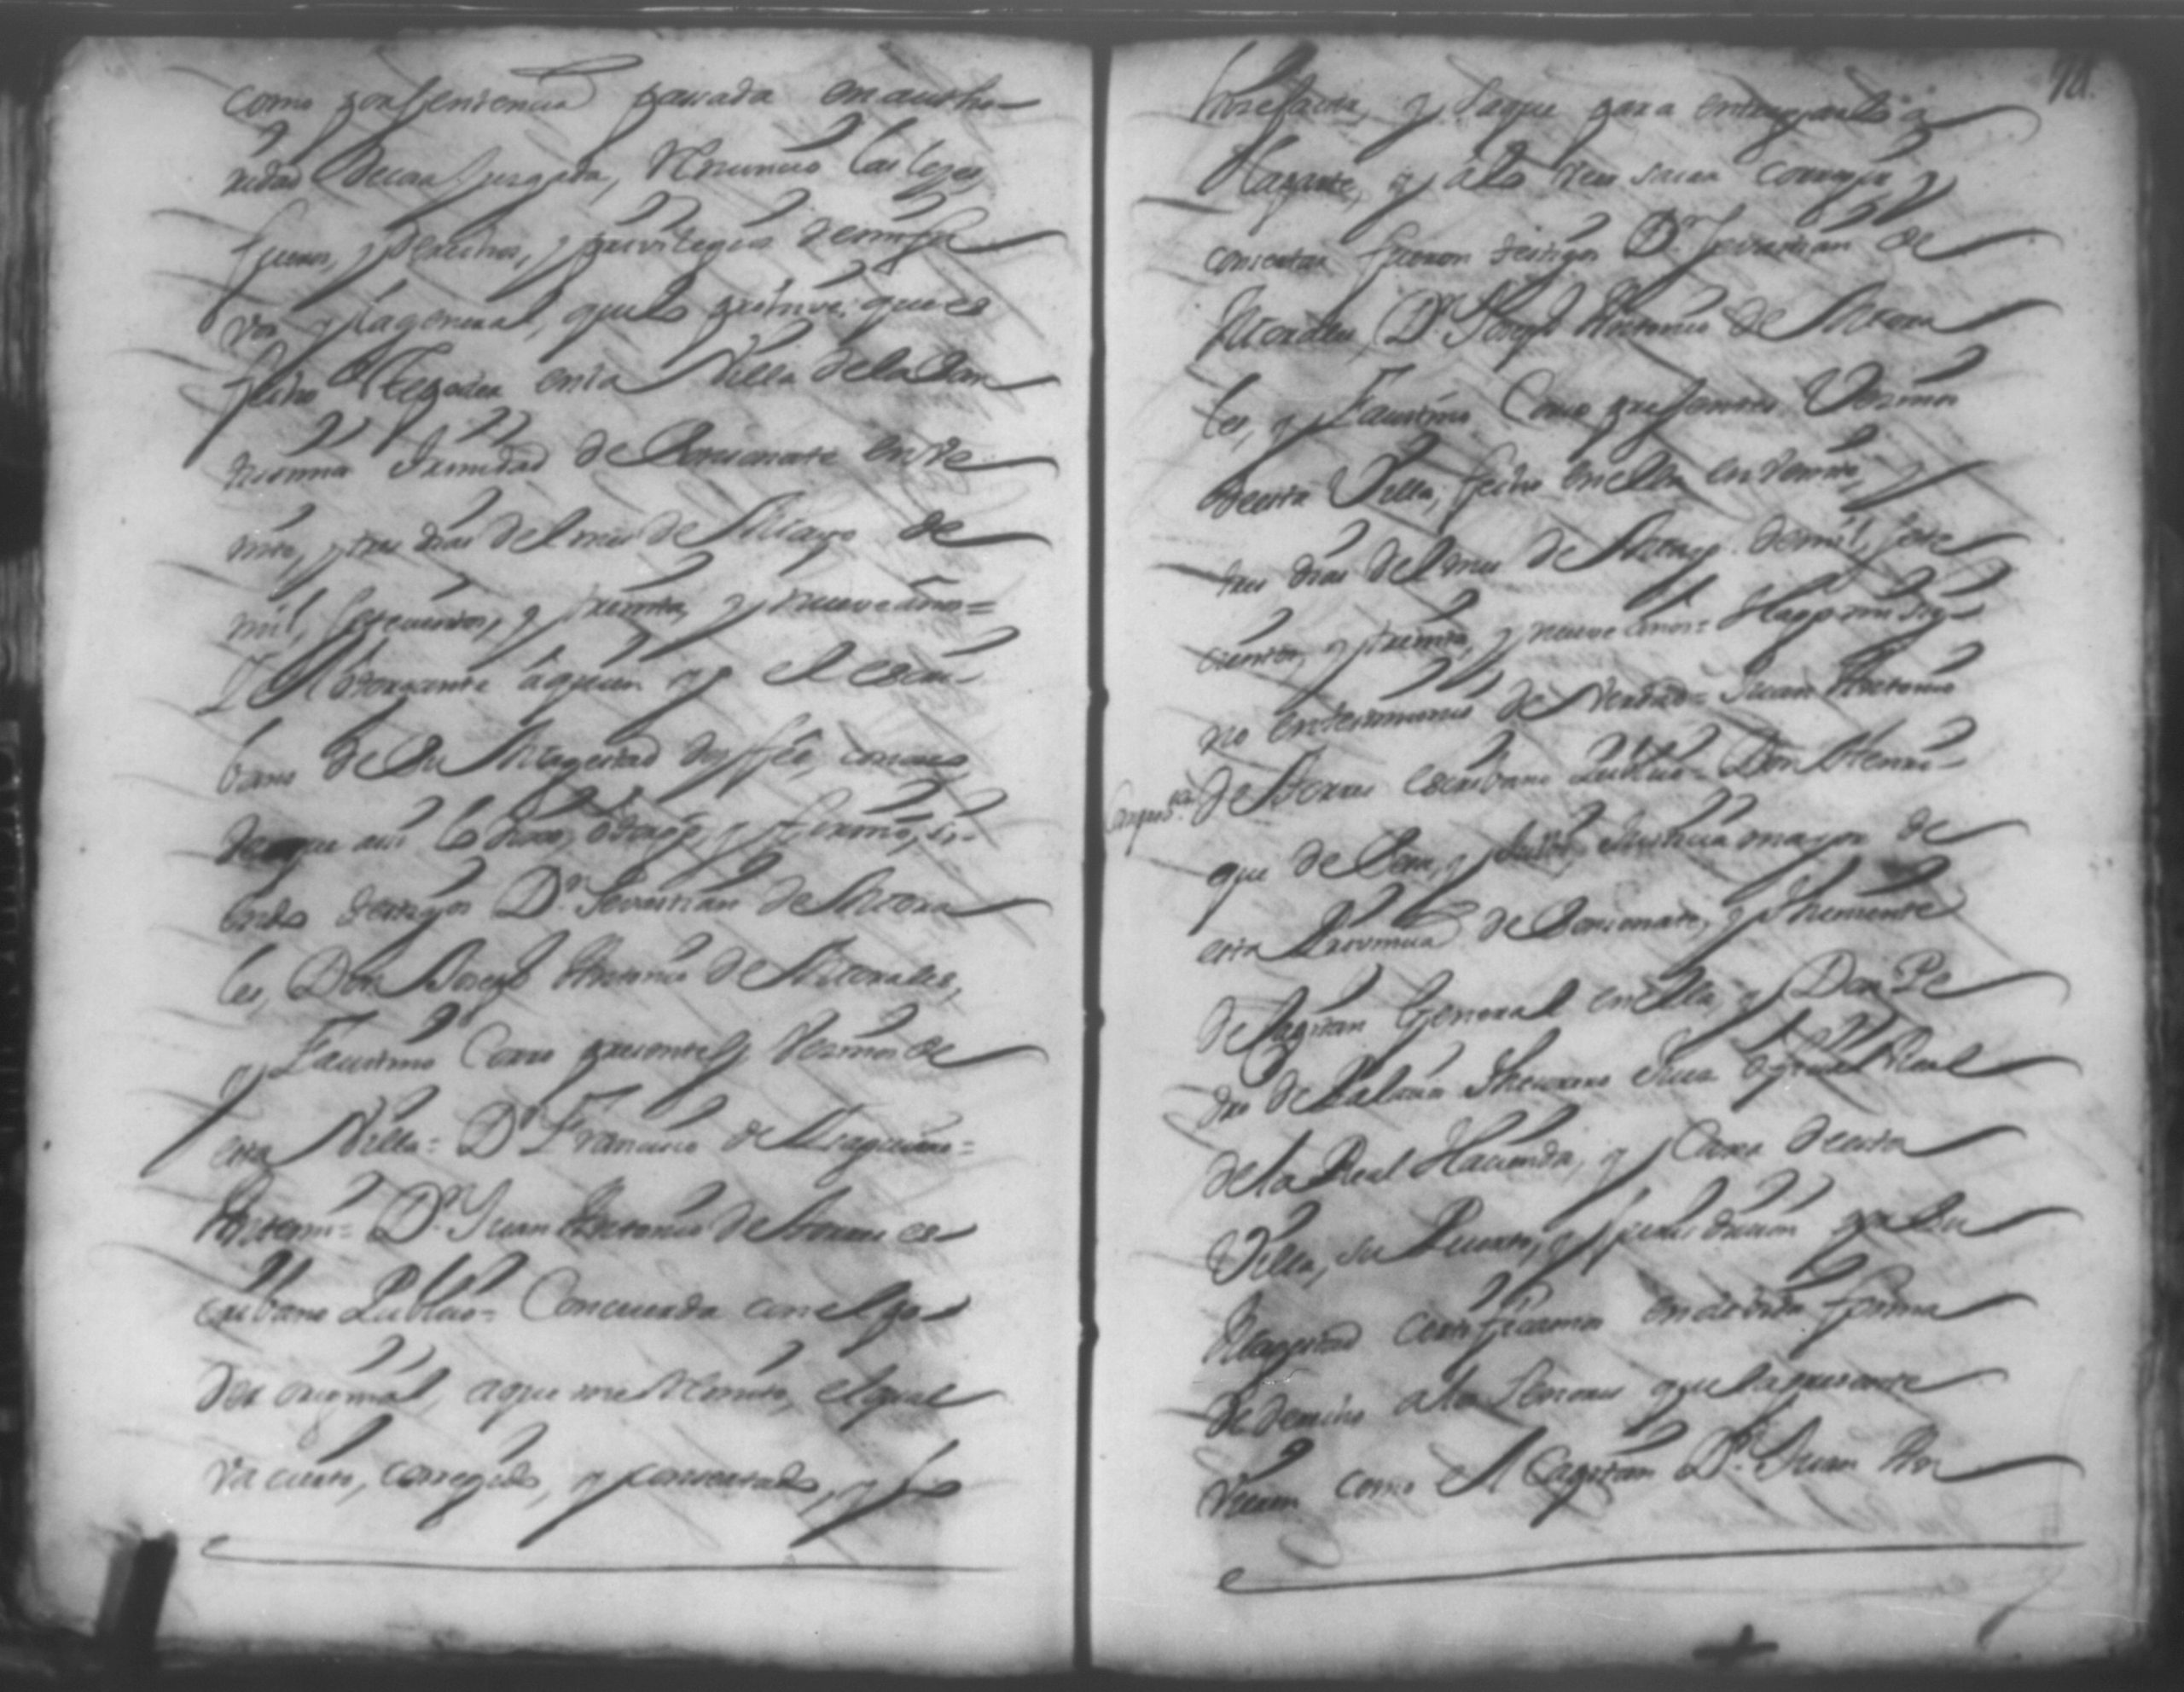 como por sentencia pasada en autho-
ridad de cosa jusgada, renuncio las leyes
fueros, y derechos, y privilegios de mi fa
vor y la general, que lo prohive que es
fecho el poder en la Villa de la San
tissima Trinidad de Sonsonate en ve
inte, y tres dias del mes de Mayo de
mil, setecientos, y treinta, y nueve años=
I el otorgante âquien yo el escri-
bano de Su Magestad doy feê, conosco,
de que assi lo dixo, otorgô, y firmô, si-
endo testigos Dn. Sevastian de Mora
les, Don Joseph Antonio de Morales,
y Faustino Coxo presentes Vezinos de
esta Villa= Dn. Francisco de =
Antemi= Dn. Juan Antonio de Torres es-
cribano Publico= Concuerda con el po-
der original, aque me remito, el qual
va cierto, corregido, y concertado, y fo

78.
y saque para entregarlo â
la parte, y âlo ver sacar corregir y
concertar fueron testigos Dn. Sevastian de
Morales Dn. Joseph Antonio de Mora
les, y Faustino Coxo presentes Vezinos
de esta Villa, fecho en ella en veinte, y
tres dias del mes de Mayo de mil, sete
cientos, y treinta, y nueve años= Hago mi sig-
no en testimonio de Verdad= Juan Antonio
de Torres escribano Publico= Don Henri-
que de Justicia mayor de
esta Provincia de Sonsonate, y Theniente
de Capitan General en ella, y Don Pe
dro de Thesorero Juez oficial Real
de la Real Hacienda, y Caxa de esta
Villa, su Puerto, y jurisdiccion por Su
Magestad Certificamos en devida forma
de derecho a los Señores que la presente
vieren como el Capitan Dn. Juan An